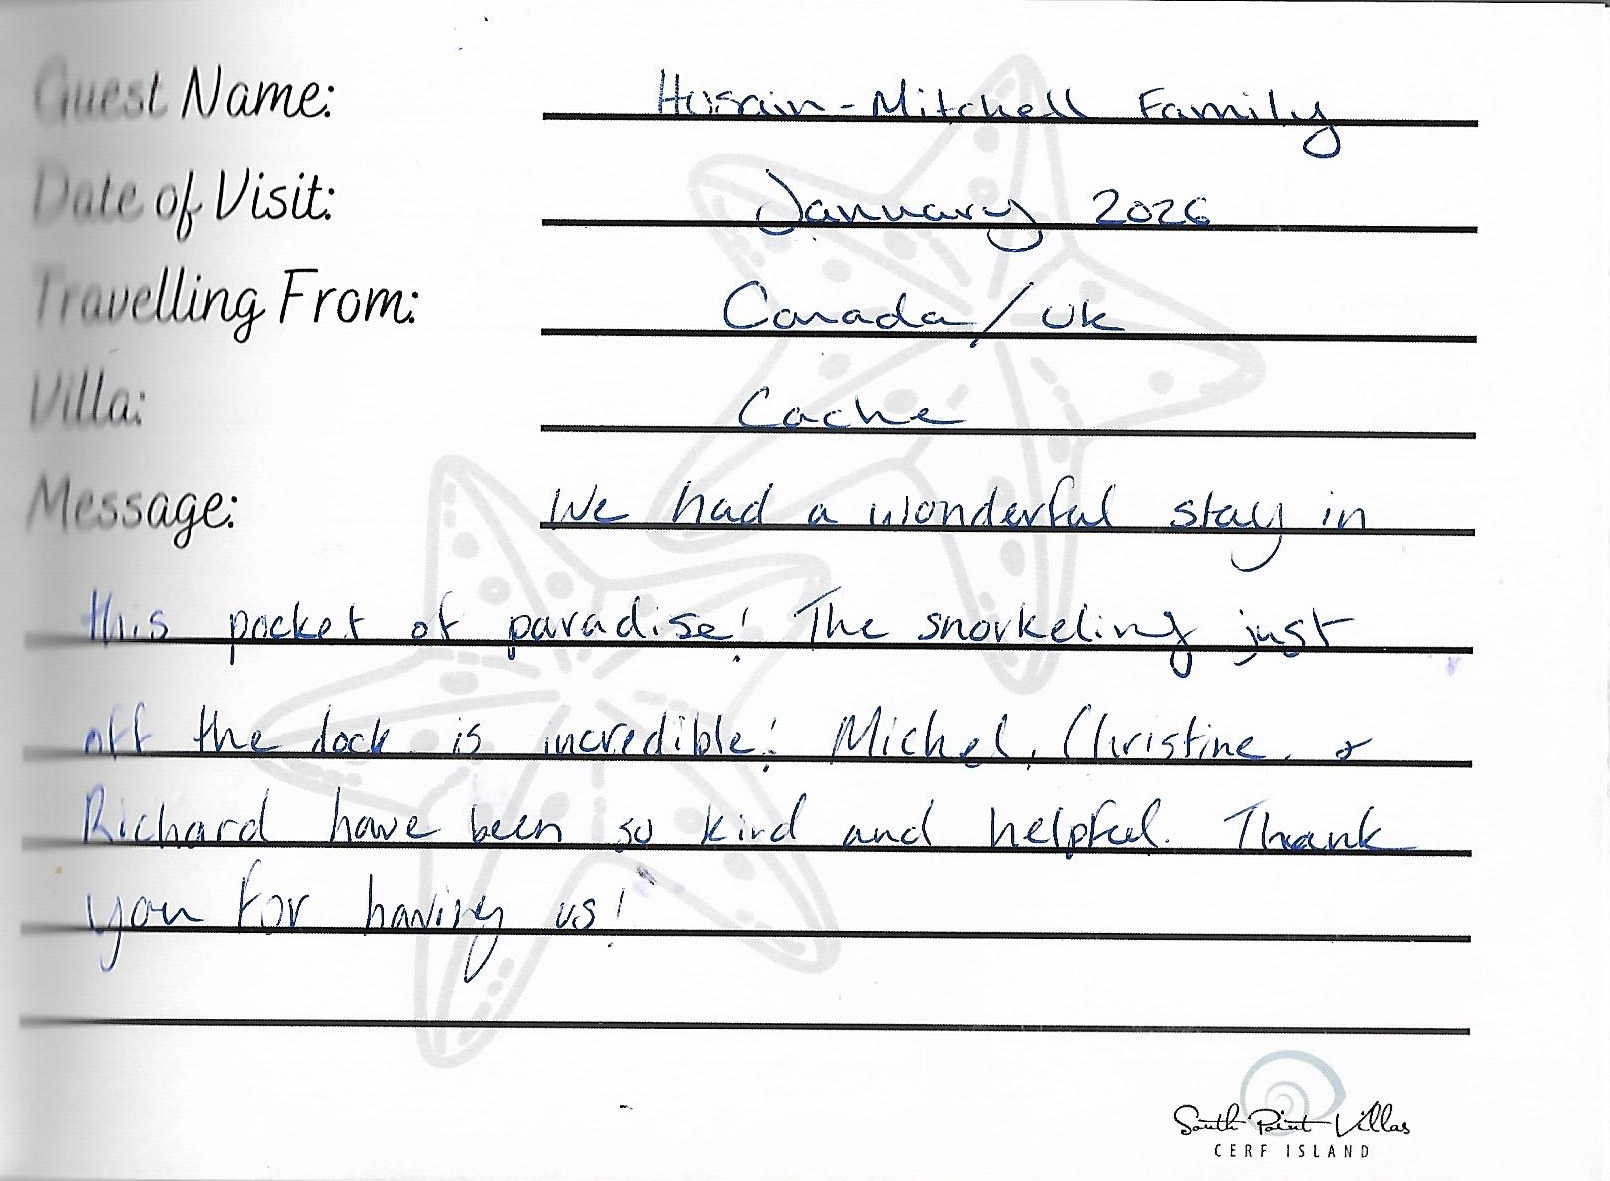 Guest Name: Husain-Mitchell Family
Date of Visit: January 2026
Travelling From: Canada/UK
Villa: Cache
Message: We had a wonderful stay in
this pocket of paradise! The snorkeling just
off the dock is incredible! Michel, Christine, &
Richard have been so kind and helpful. Thank
you for having us!
South Point Villas
CERF ISLAND